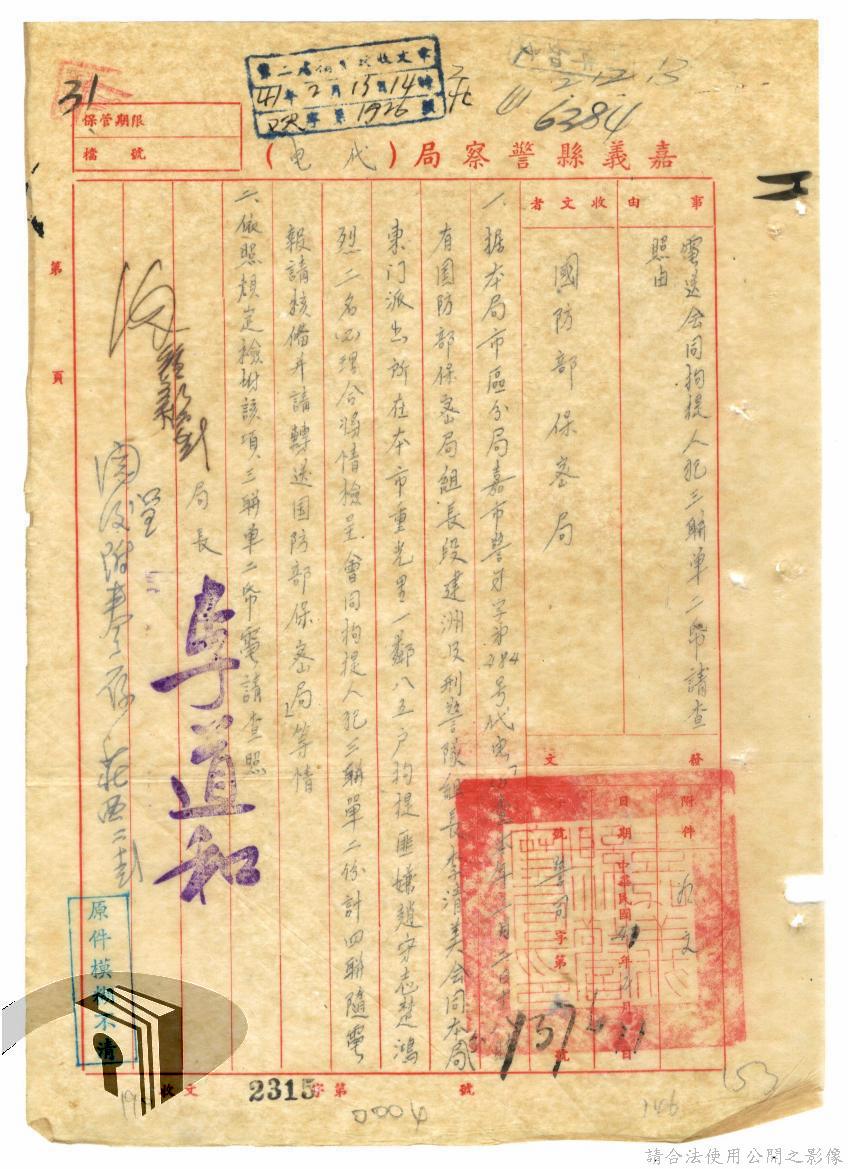 第二處偵防組收文章
41年2月15日14時
字第1926號
31
保管期限
檔號
6384
嘉義縣警察局(代電)
事由
電送会同拘提人犯三联单二帋請查
照由
收文者
國防部保密局
發文
附件
如文
日期 中華民國41年2月11日
號 警司字第
1379
號
一、据本局市區分局嘉市警牙字第284号代电
有国防部保密局組長段建洲及刑警隊組長李清美会同本局
東门派出所在本市重光里一鄰八五户拘提匪嫌趙守志楚鴻
烈二名 理合將情檢呈會同拘提人犯三联單二份計四联隨電
報請核備并請轉送国防部保密局等情
二、依照規定檢附該項三联单二帋電請查照
局長
李道和
第
頁
原件模糊不清
收文
字第
2315
號
0004
146
153
請合法使用公開之影像